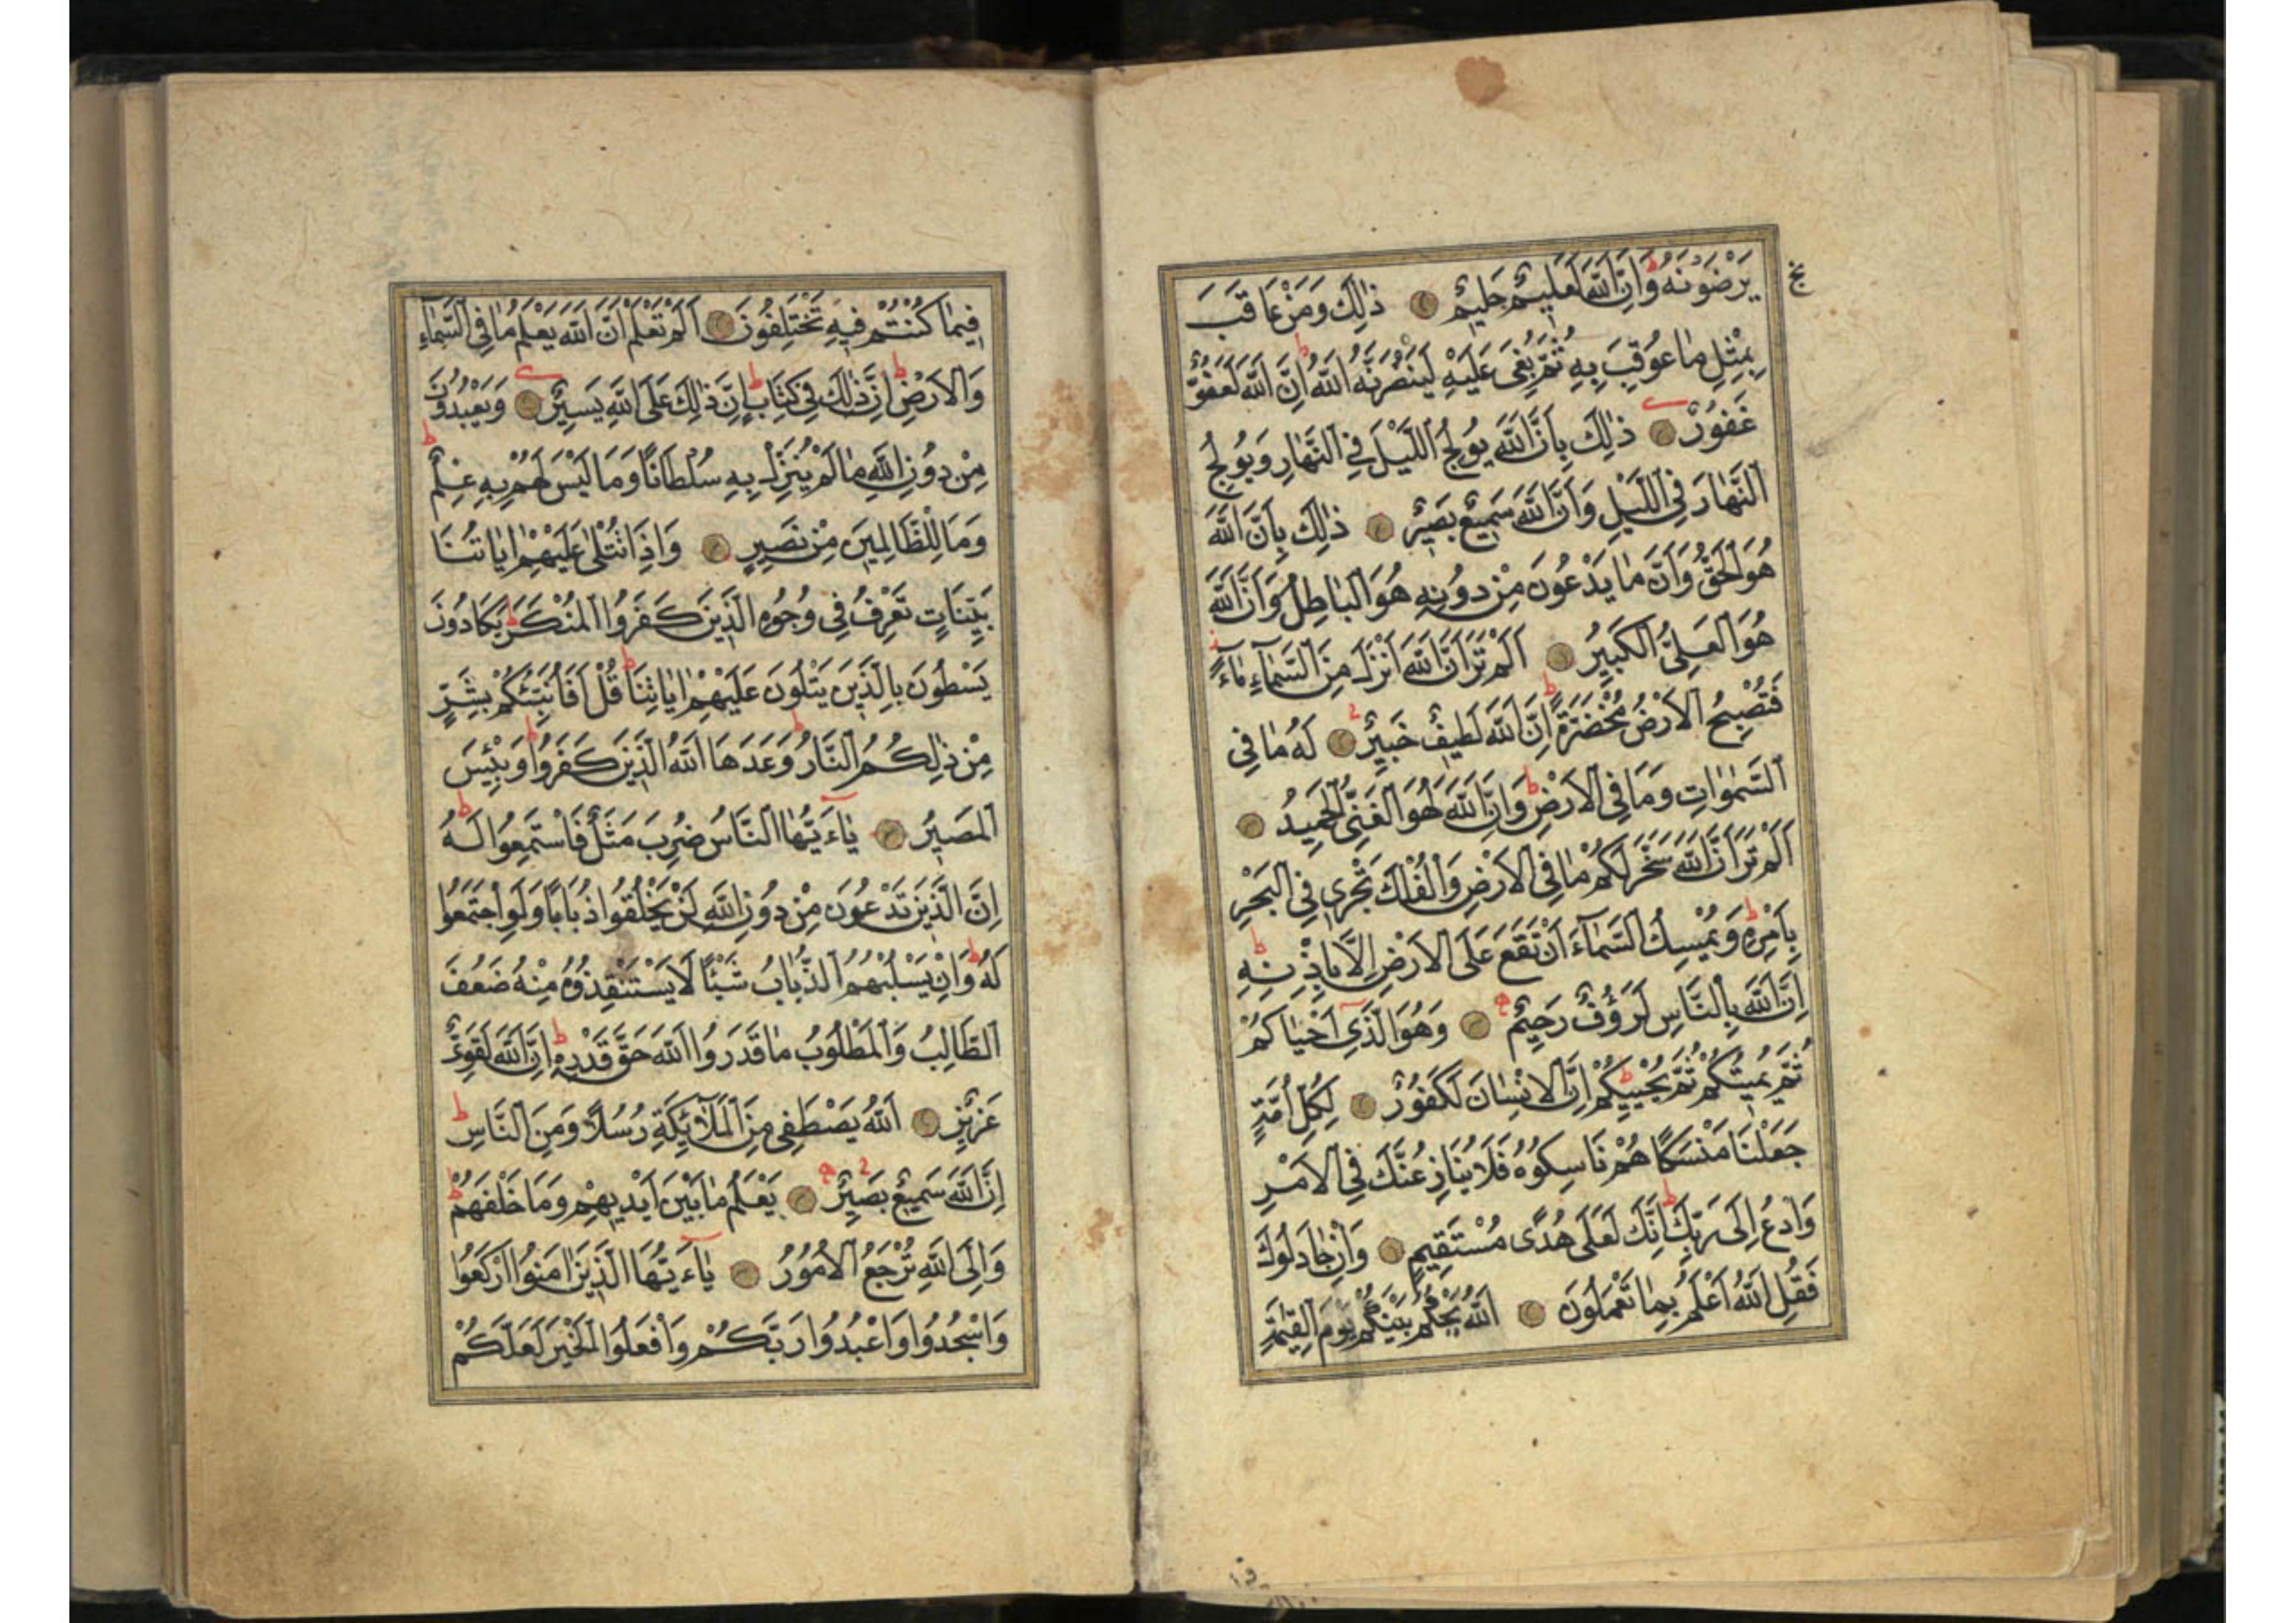 يَرْضَوْنَهُ وَاِنَّ اللّٰهَ لَعَلِيمٌ حَلِيمٌ ذٰلِكَ وَمَنْ عَاقَبَ
بِمِثْلِ مَا عُوقِبَ بِهِ ثُمَّ بُغِيَ عَلَيْهِ لَيَنْصُرَنَّهُ اللّٰهُ اِنَّ اللّٰهَ لَعَفُوٌّ
غَفُورٌ ذٰلِكَ بِاَنَّ اللّٰهَ يُولِجُ اللَّيْلَ فِي النَّهَارِ وَيُولِجُ
النَّهَارَ فِي اللَّيْلِ وَاَنَّ اللّٰهَ سَمِيعٌ بَصِيرٌ ذٰلِكَ بِاَنَّ اللّٰهَ
هُوَ الْحَقُّ وَاَنَّ مَا يَدْعُونَ مِنْ دُونِهِ هُوَ الْبَاطِلُ وَاَنَّ اللّٰهَ
هُوَ الْعَلِيُّ الْكَبِيرُ اَلَمْ تَرَ اَنَّ اللّٰهَ اَنْزَلَ مِنَ السَّمَاءِ مَاءً
فَتُصْبِحُ الْاَرْضُ مُخْضَرَّةً اِنَّ اللّٰهَ لَطِيفٌ خَبِيرٌ لَهُ مَا فِي
السَّمٰوَاتِ وَمَا فِي الْاَرْضِ وَاِنَّ اللّٰهَ لَهُوَ الْغَنِيُّ الْحَمِيدُ
اَلَمْ تَرَ اَنَّ اللّٰهَ سَخَّرَ لَكُمْ مَا فِي الْاَرْضِ وَالْفُلْكَ تَجْرِي فِي الْبَحْرِ
بِاَمْرِهِ وَيُمْسِكُ السَّمَاءَ اَنْ تَقَعَ عَلَى الْاَرْضِ اِلَّا بِاِذْنِهِ
اِنَّ اللّٰهَ بِالنَّاسِ لَرَؤُفٌ رَحِيمٌ وَهُوَ الَّذِي اَحْيَاكُمْ
ثُمَّ يُمِيتُكُمْ ثُمَّ يُحْيِيكُمْ اِنَّ الْاِنْسَانَ لَكَفُورٌ لِكُلِّ اُمَّةٍ
جَعَلْنَا مَنْسَكًا هُمْ نَاسِكُوهُ فَلَا يُنَازِعُنَّكَ فِي الْاَمْرِ
وَادْعُ اِلَى رَبِّكَ اِنَّكَ لَعَلَى هُدًى مُسْتَقِيمٍ وَاِنْ جَادَلُوكَ
فَقُلِ اللّٰهُ اَعْلَمُ بِمَا تَعْمَلُونَ اَللّٰهُ يَحْكُمُ بَيْنَكُمْ يَوْمَ الْقِيٰمَةِ
فِيمَا كُنْتُمْ فِيهِ تَخْتَلِفُونَ اَلَمْ تَعْلَمْ اَنَّ اللّٰهَ يَعْلَمُ مَا فِي السَّمَاءِ
وَالْاَرْضِ اِنَّ ذٰلِكَ فِي كِتَابٍ اِنَّ ذٰلِكَ عَلَى اللّٰهِ يَسِيرٌ وَيَعْبُدُونَ
مِنْ دُونِ اللّٰهِ مَا لَمْ يُنَزِّلْ بِهِ سُلْطَانًا وَمَا لَيْسَ لَهُمْ بِهِ عِلْمٌ
وَمَا لِلظَّالِمِينَ مِنْ نَصِيرٍ وَاِذَا تُتْلَى عَلَيْهِمْ اٰيَاتُنَا
بَيِّنَاتٍ تَعْرِفُ فِي وُجُوهِ الَّذِينَ كَفَرُوا الْمُنْكَرَ يَكَادُونَ
يَسْطُونَ بِالَّذِينَ يَتْلُونَ عَلَيْهِمْ اٰيَاتِنَا قُلْ اَفَاُنَبِّئُكُمْ بِشَرٍّ
مِنْ ذٰلِكُمُ النَّارُ وَعَدَهَا اللّٰهُ الَّذِينَ كَفَرُوا وَبِئْسَ
الْمَصِيرُ يَاءَيُّهَا النَّاسُ ضُرِبَ مَثَلٌ فَاسْتَمِعُوا لَهُ
اِنَّ الَّذِينَ تَدْعُونَ مِنْ دُونِ اللّٰهِ لَنْ يَخْلُقُوا ذُبَابًا وَلَوِ اجْتَمَعُوا
لَهُ وَاِنْ يَسْلُبْهُمُ الذُّبَابُ شَيْئًا لَا يَسْتَنْقِذُوهُ مِنْهُ ضَعُفَ
الطَّالِبُ وَالْمَطْلُوبُ مَا قَدَرُوا اللّٰهَ حَقَّ قَدْرِهِ اِنَّ اللّٰهَ لَقَوِيٌّ
عَزِيزٌ اَللّٰهُ يَصْطَفِي مِنَ الْمَلَائِكَةِ رُسُلًا وَمِنَ النَّاسِ
اِنَّ اللّٰهَ سَمِيعٌ بَصِيرٌ يَعْلَمُ مَا بَيْنَ اَيْدِيهِمْ وَمَا خَلْفَهُمْ
وَاِلَى اللّٰهِ تُرْجَعُ الْاُمُورُ يَاءَيُّهَا الَّذِينَ اٰمَنُوا ارْكَعُوا
وَاسْجُدُوا وَاعْبُدُوا رَبَّكُمْ وَافْعَلُوا الْخَيْرَ لَعَلَّكُمْ